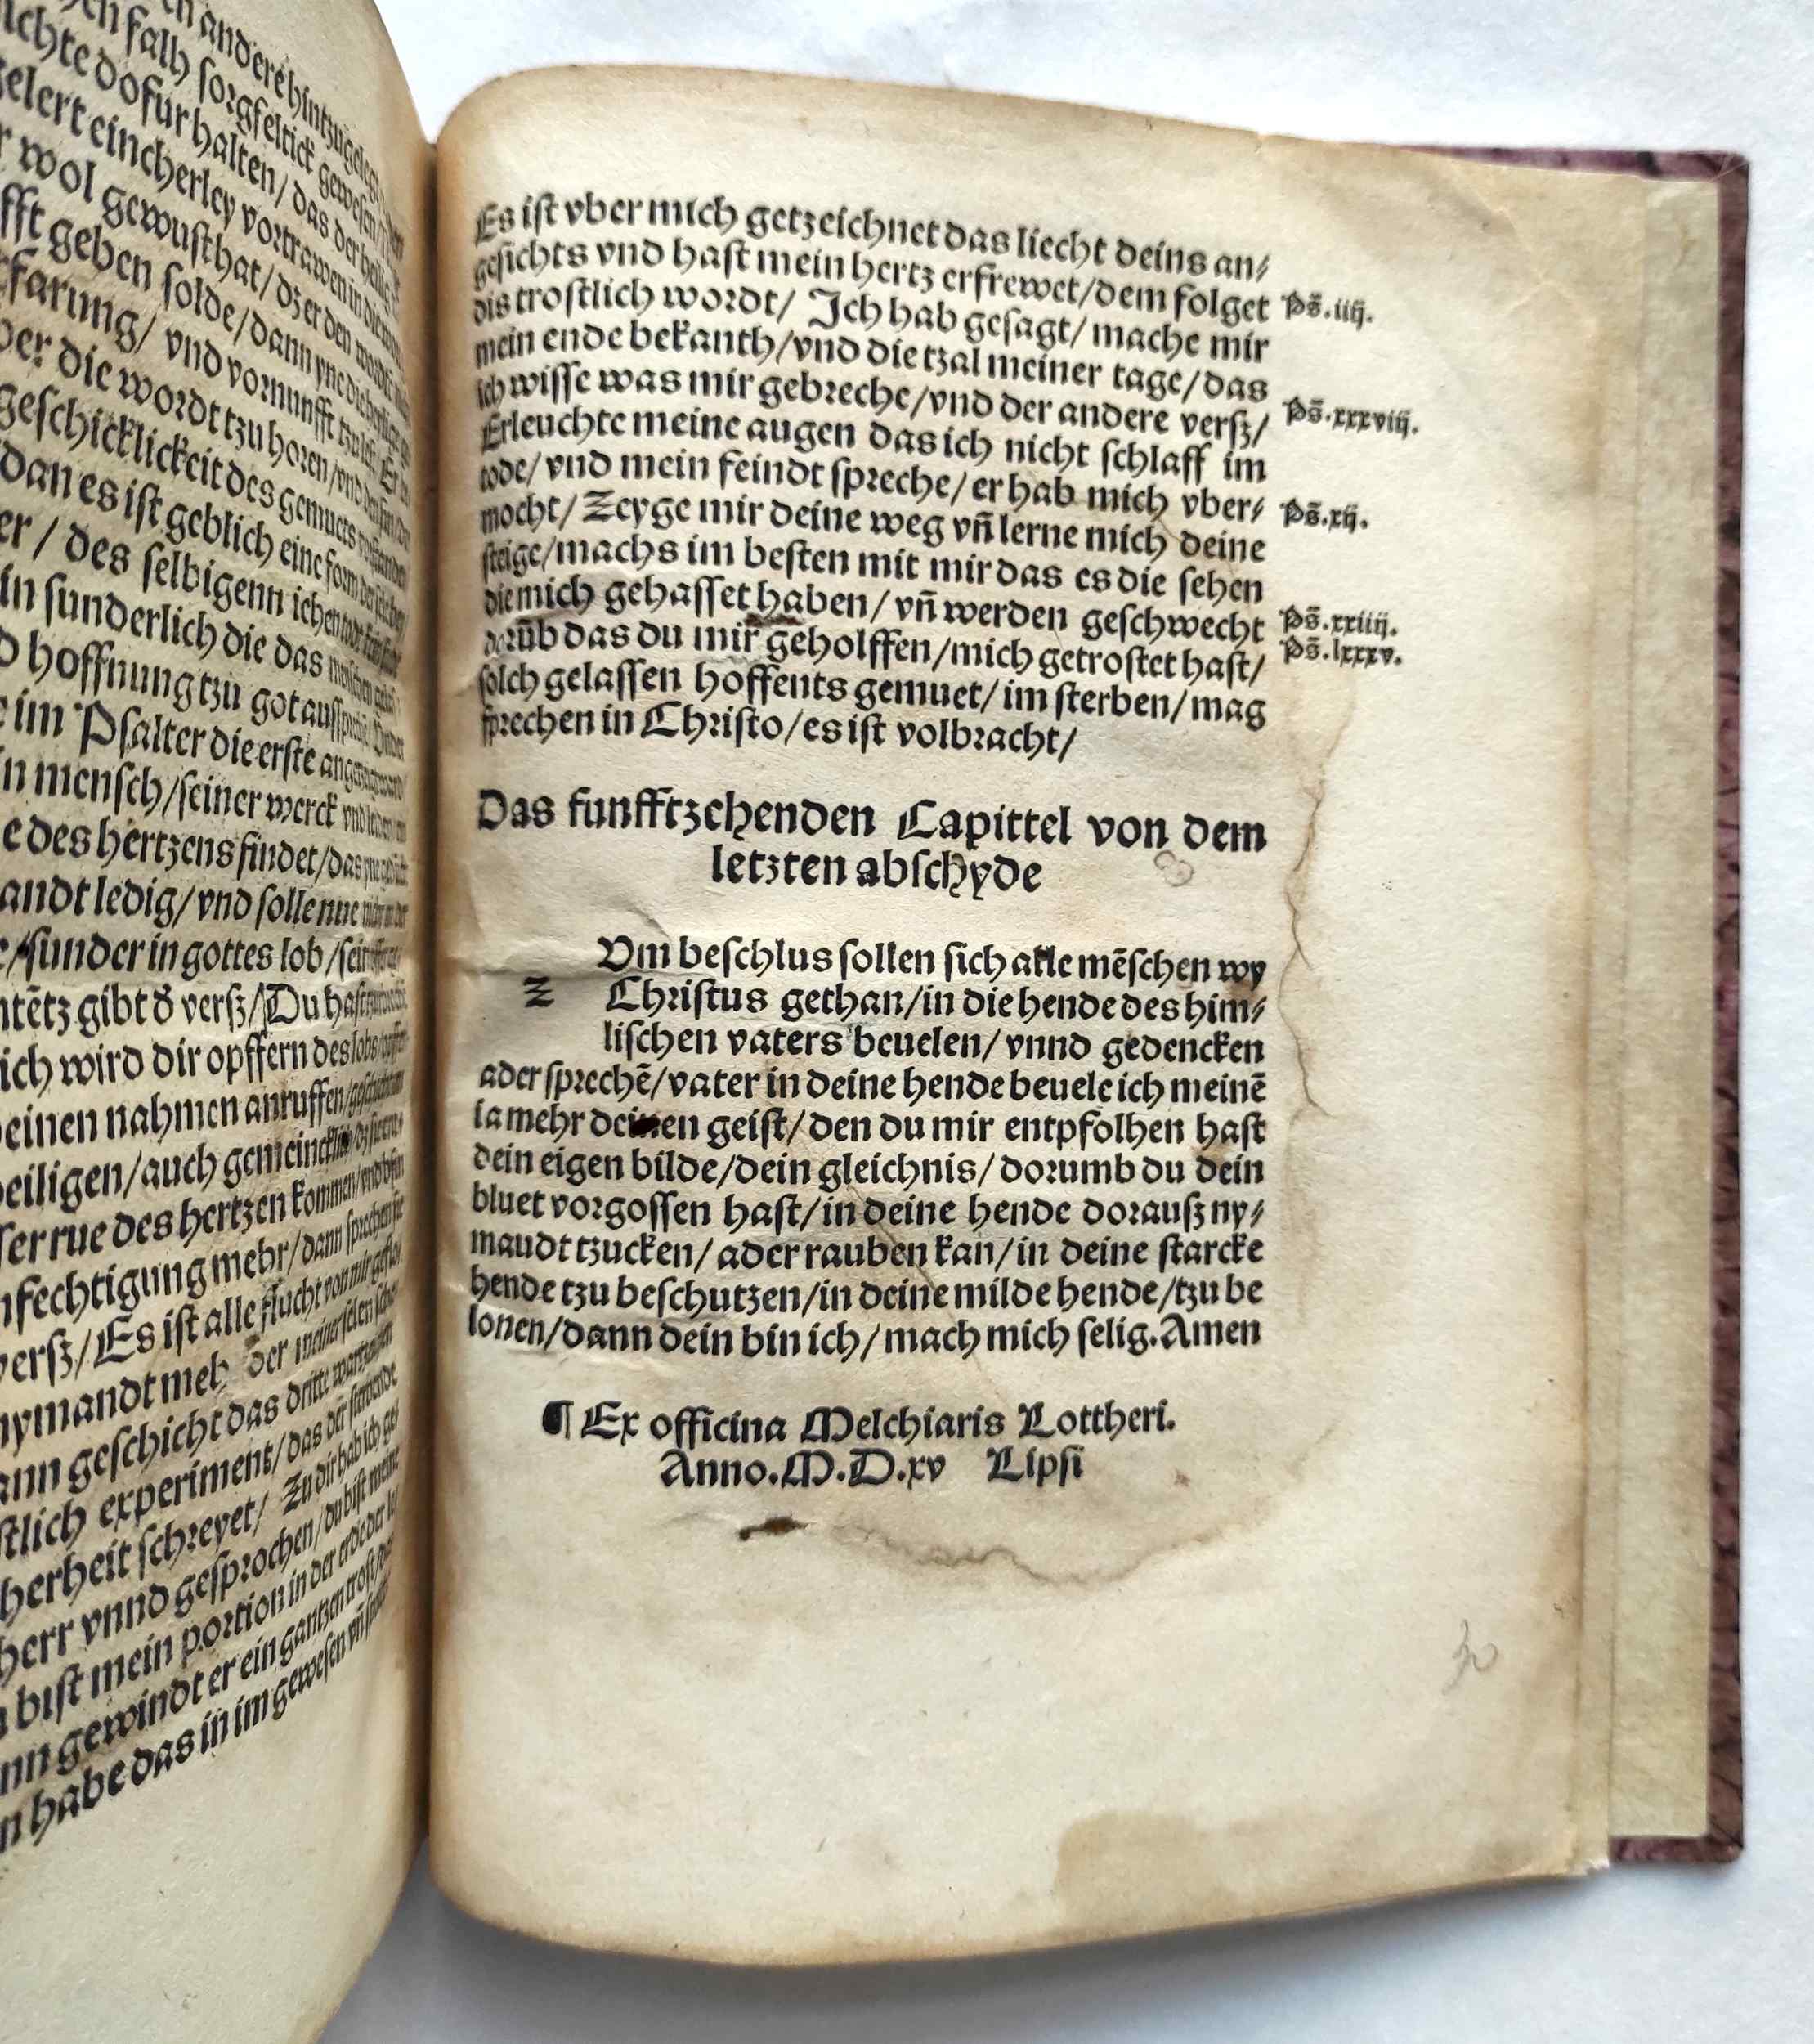 en andere hintzugelegt
en falh sorgfeltick gewesen
ichte dofur halten/ das der heilig
gelert eincherley vortrawen in die
wol gewust hat/ dz er den
fft geben solde/ dann yne die heilige
farung/ vnd vornunfft
ber die wordt tzu horen/ vnd
geschicklickeit des gemuets
dan es ist geblich eine form der
er/ des selbigenn ichen
in sunderlich die das
hoffnung tzu got
im Psalter die erste
n mensch/ seiner werck vnd
e des hertzens findet/ das
andt ledig/ vnd solle nue
/sunder in gottes lob/
tētz gibt ð verß/ Du hast
ich wird dir opffern des lobs
einen nahmen anruffen/
eiligen/ auch gemeincklich
er rue des hertzen kommen/
nfechtigung mehr/ dann sprechen
verß/ Es ist alle flucht von mir
nymandt meh der meiner selen
ann geschicht das dritte
stlich experiment/ das der sterbende
herheit schreyet/ Zu dir hab ich
herr vnnd gesprochen/ du bist meine
bist mein portion in der erde der
nn gewindt er ein gantzen trost/
habe das in im gewesen vñ
Es ist vber mich getzeichnet das liecht deins an/
gesichts vnd hast mein hertz erfrewet/ dem folget
Ps̄.iiij.
dis trostlich wordt/ Ich hab gesagt/ mache mir
mein ende bekanth/ vnd die tzal meiner tage/ das
ich wisse was mir gebreche/ vnd der andere verß/
Ps̄.xxxviij.
Erleuchte meine augen das ich nicht schlaff im
tode/ vnd mein feindt spreche/ er hab mich vber/
Ps̄.xij.
mocht/ Zeyge mir deine weg vñ lerne mich deine
steige/ machs im besten mit mir das es die sehen
die mich gehasset haben/ vñ werden geschwecht
Ps̄.xxiiij.
dorūb das du mir geholffen/ mich getrostet hast/
Ps̄.lxxxv.
solch gelassen hoffents gemuet/ im sterben/ mag
sprechen in Christo/ es ist volbracht/
Das funfftzehenden Capittel von dem
letzten abschyde
Z
Vm beschlus sollen sich alle mēschen wy
Christus gethan/ in die hende des him/
lischen vaters beuelen/ vnnd gedencken
ader sprechē/ vater in deine hende beuele ich meinē
ia mehr deinen geist/ den du mir entpfolhen hast
dein eigen bilde/ dein gleichnis/ dorumb du dein
bluet vorgossen hast/ in deine hende dorauß ny/
maudt tzucken/ ader rauben kan/ in deine starcke
hende tzu beschutzen/ in deine milde hende/ tzu be
lonen/ dann dein bin ich/ mach mich selig. Amen
¶ Ex officina Melchiaris Lottheri.
Anno. M. D. xv Lipsi